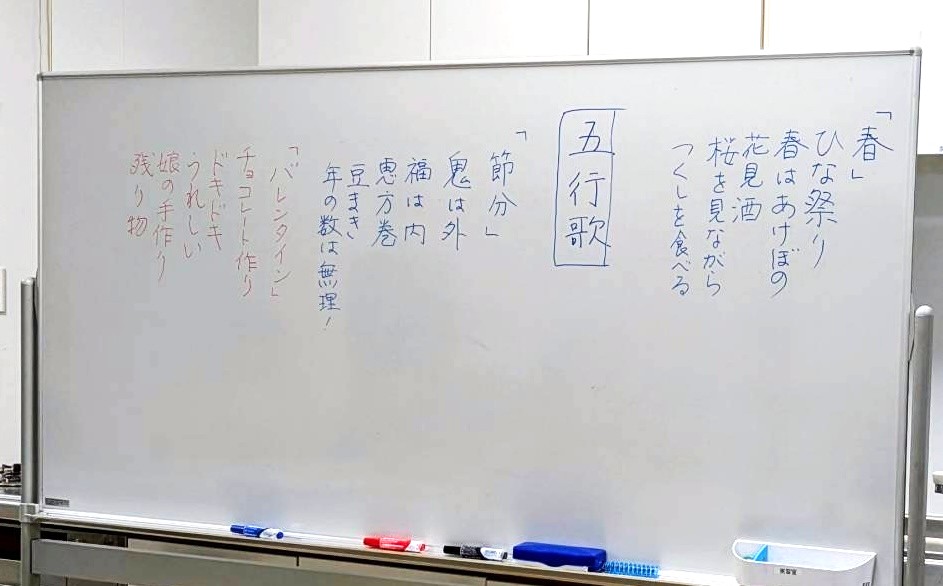 「春」
ひな祭り
春はあけぼの
花見酒
桜を見ながら
つくしを食べる
五行歌
「節分」
鬼は外
福は内
恵方巻
豆まき
年の数は無理!
「バレンタイン」
チョコレート作り
ドキドキ
うれしい
娘の手作り
残り物